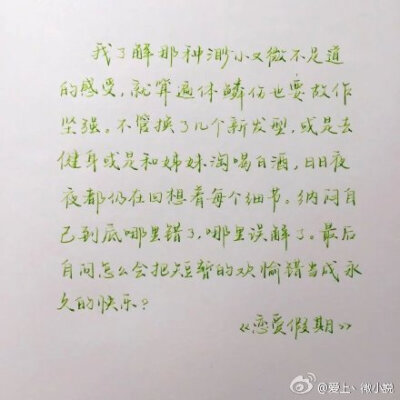 我了解那种渺小又微不足道
的感受，就算遍体鳞伤也要故作
坚强。不管换了几个新发型，或是去
健身或是和姊妹淘喝白酒，日日夜
夜都仍在回想着每个细节。纳闷自
己到底哪里错了，哪里误解了。最后
自问怎么会把短暂的欢愉错当成永
久的快乐？
《恋爱假期》
@爱上、微小说